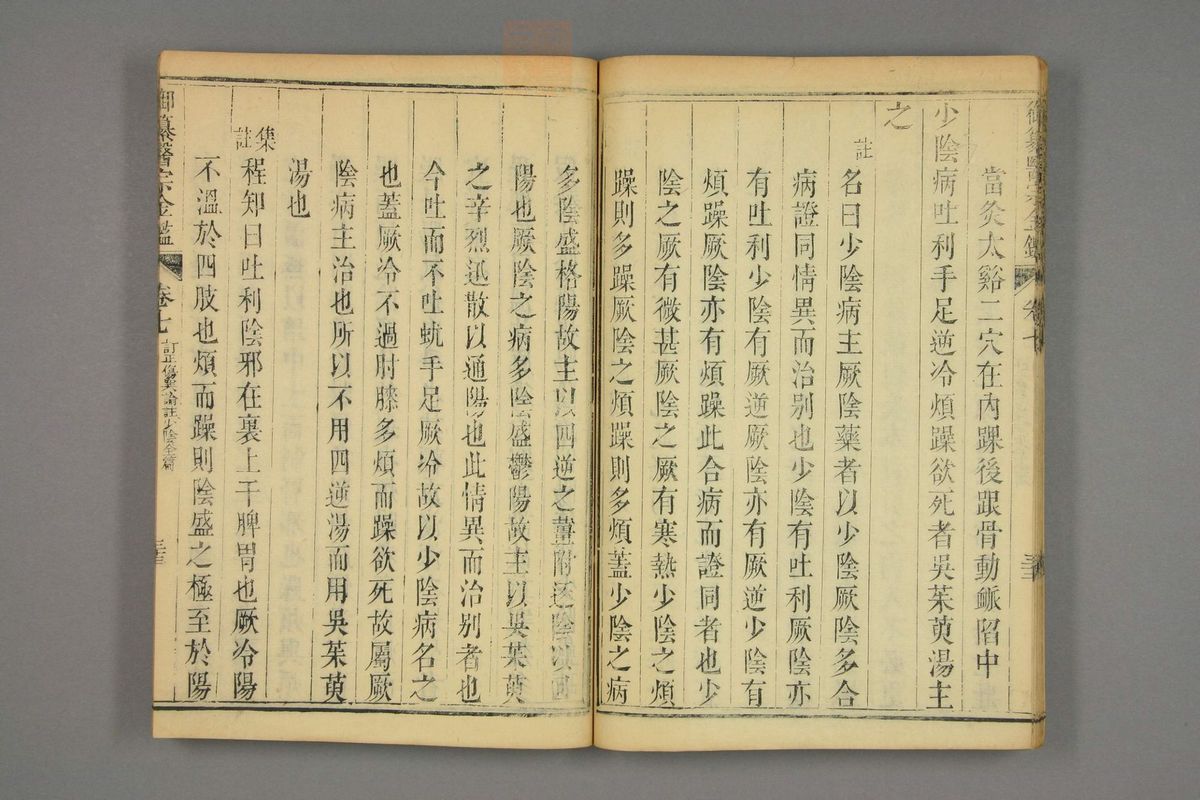 當灸太谿二穴在內踝後跟骨動脈陷中
少陰病吐利手足逆冷煩躁欲死者吳茱萸湯主
之
註
名曰少陰病主厥陰藥者以少陰厥陰多合
病證同情異而治别也少陰有吐利厥陰亦
有吐利少陰有厥逆厥陰亦有厥逆少陰有
煩躁厥陰亦有煩躁此合病而證同者也少
陰之厥有微甚厥陰之厥有寒熱少陰之煩
躁則多躁厥陰之煩躁則多煩蓋少陰之病
多陰盛格陽故主以四逆之薑附逐陰以回
陽也厥陰之病多陰盛鬱陽故主以吳茱萸
之辛烈迅散以通陽也此情異而治别者也
今吐而不吐蚘手足厥冷故以少陰病名之
也蓋厥冷不過肘膝多煩而躁欲死故屬厥
陰病主治也所以不用四逆湯而用吳茱萸
湯也
集註
程知曰吐利陰邪在裏上干脾胃也厥冷陽
不溫於四肢也煩而躁則陰盛之極至於陽
御纂醫宗金鑑
卷七
訂正傷寒論註少陰全篇